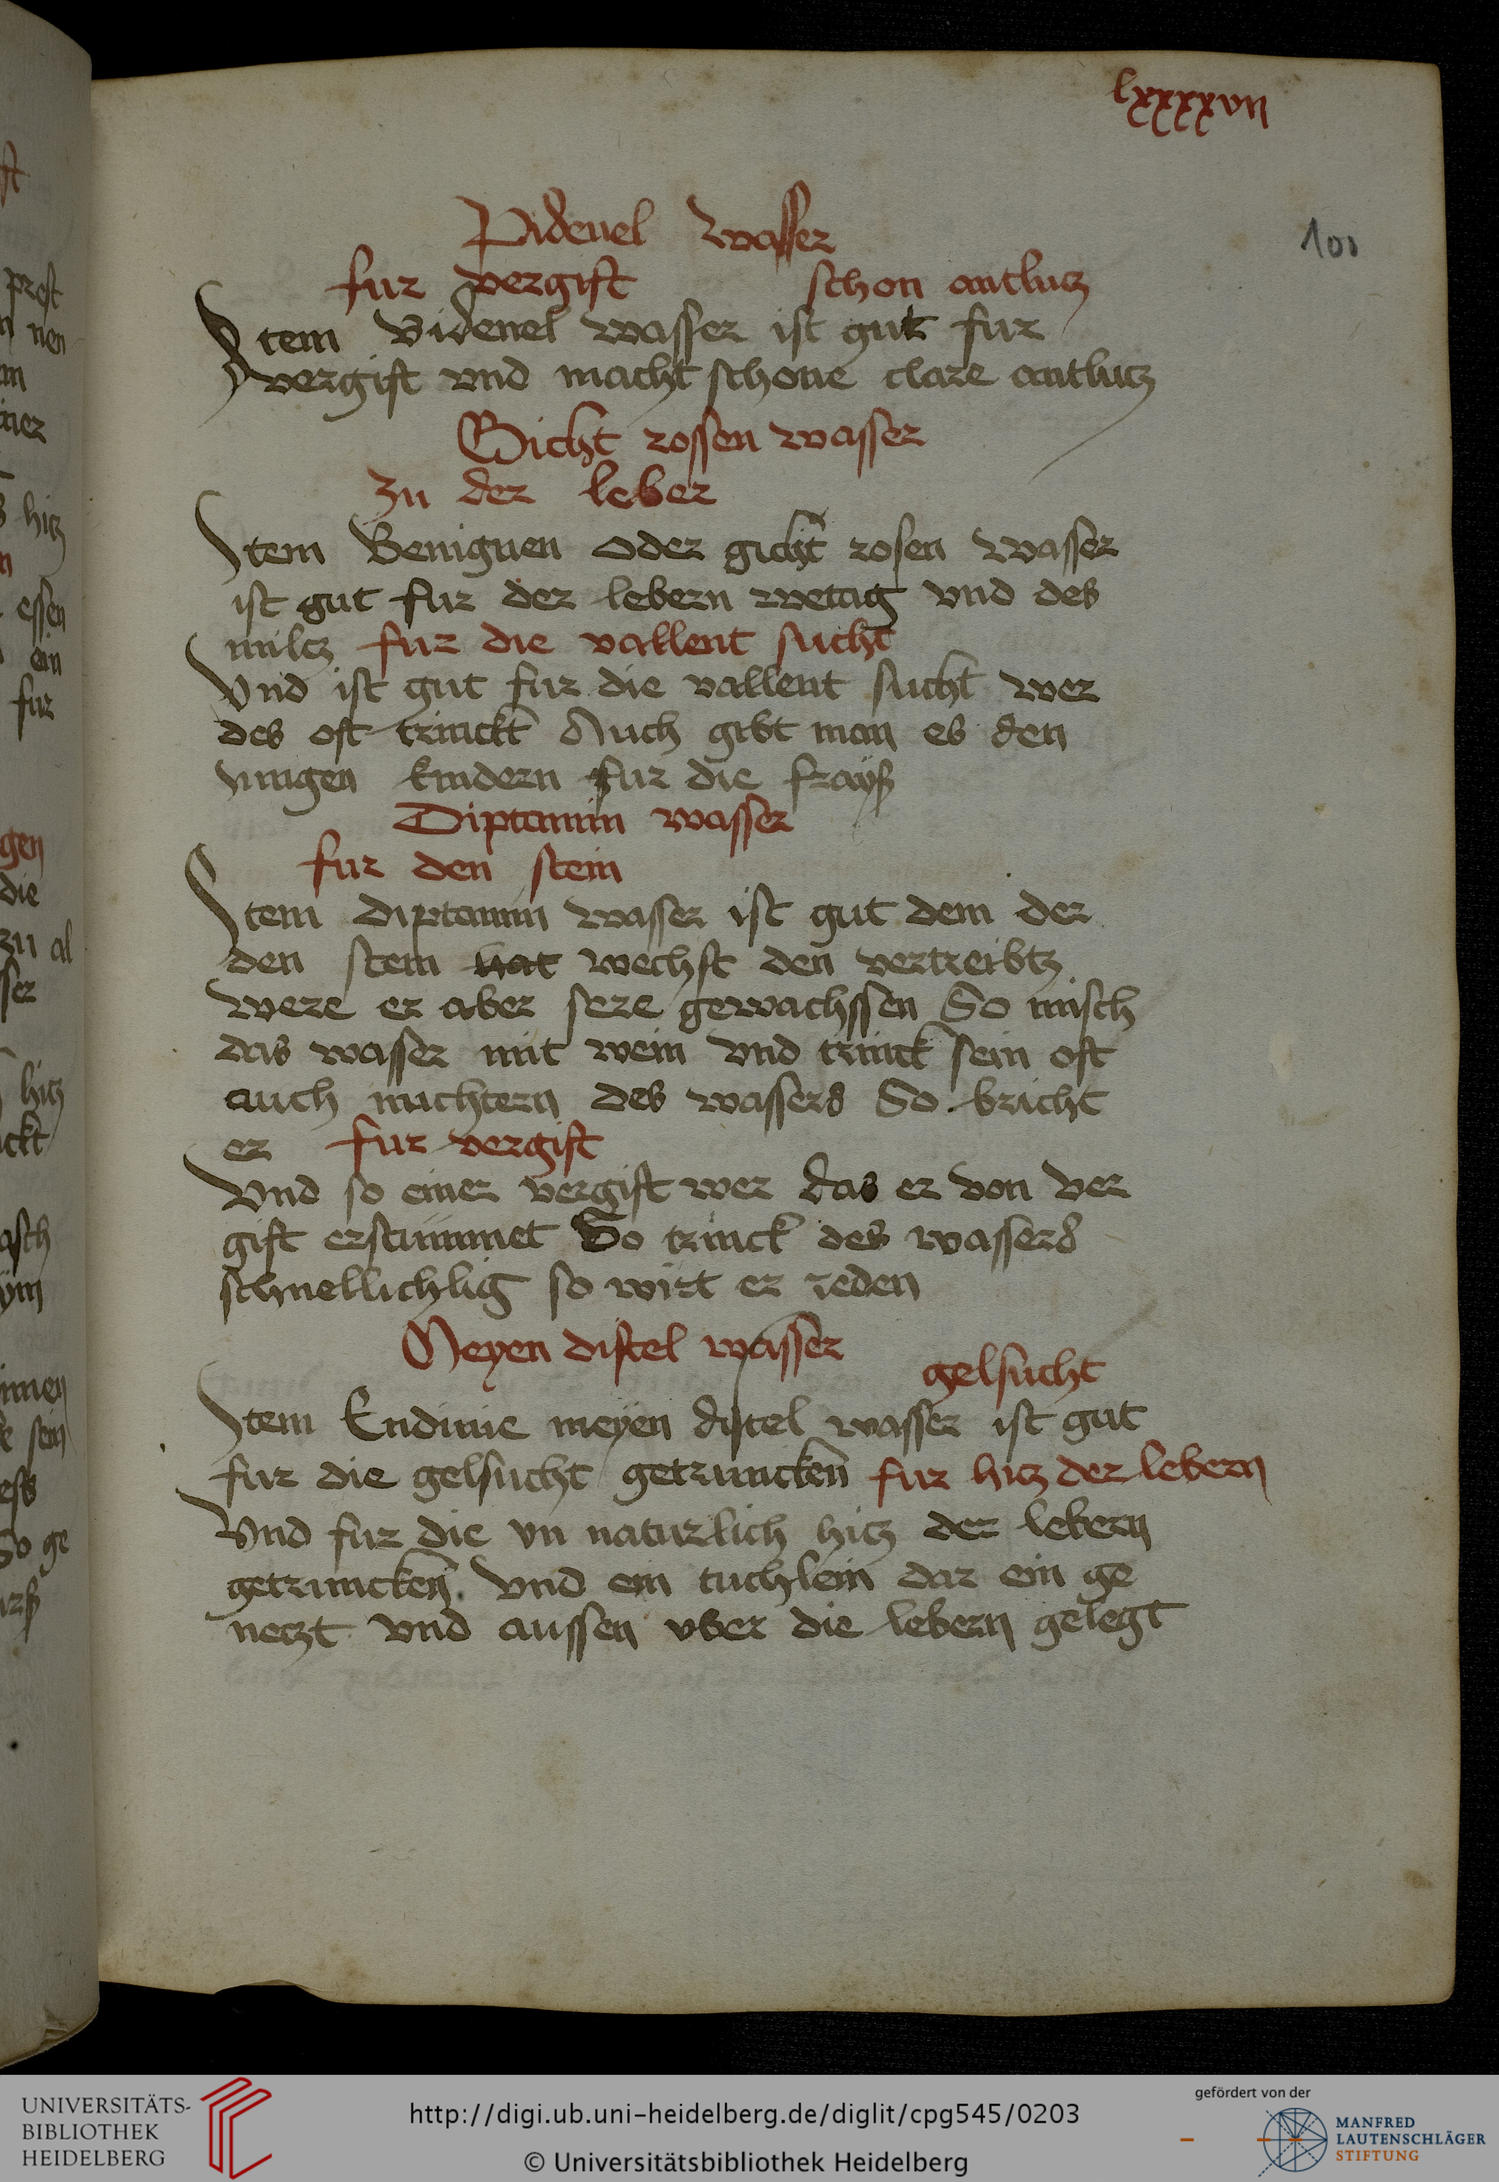 lxxxxvii
100
Pidenel wasser
fur vergift schon antlutz
Item Bidenel wasser ist gut fur
vergift vnd macht schone clare antlutz
Gicht rossen wasser
zu der leber
Item Benignen oder gicht rosen wasser
ist gut fur der lebern wetag vnd des
miltz fur die vallent sucht
Vnd ist gut fur die vallent sucht wer
des oft trinckt Auch gibt man es den
iungen kindern fur die frayß
Diptamm wasser
fur den stein
Item diptamm wasser ist gut dem der
den stein hat wechst den vertreibtz
were er aber sere gewachssen So misch
das wasser mit wein vnd trinck sein oft
auch nuchtern des wassers So bricht
er fur vergift
Vnd so einer vergift wer das er von ver
gift erstummet So trinck des wassers
schnellichlig so wirt er reden
Meyen distel wasser
gelsucht
Item Endiuie meyen distel wasser ist gut
fur die gelsucht getruncken fur hitz der lebern
Vnd fur die vn naturlich hitz der lebern
getruncken Vnd ein tuchlein dar ein ge
netzt vnd aussen vber die lebern gelegt
UNIVERSITÄTS-
BIBLIOTHEK
HEIDELBERG
http://digi.ub.uni-heidelberg.de/diglit/cpg545/0203
© Universitätsbibliothek Heidelberg
gefördert von der
MANFRED
LAUTENSCHLÄGER
STIFTUNG